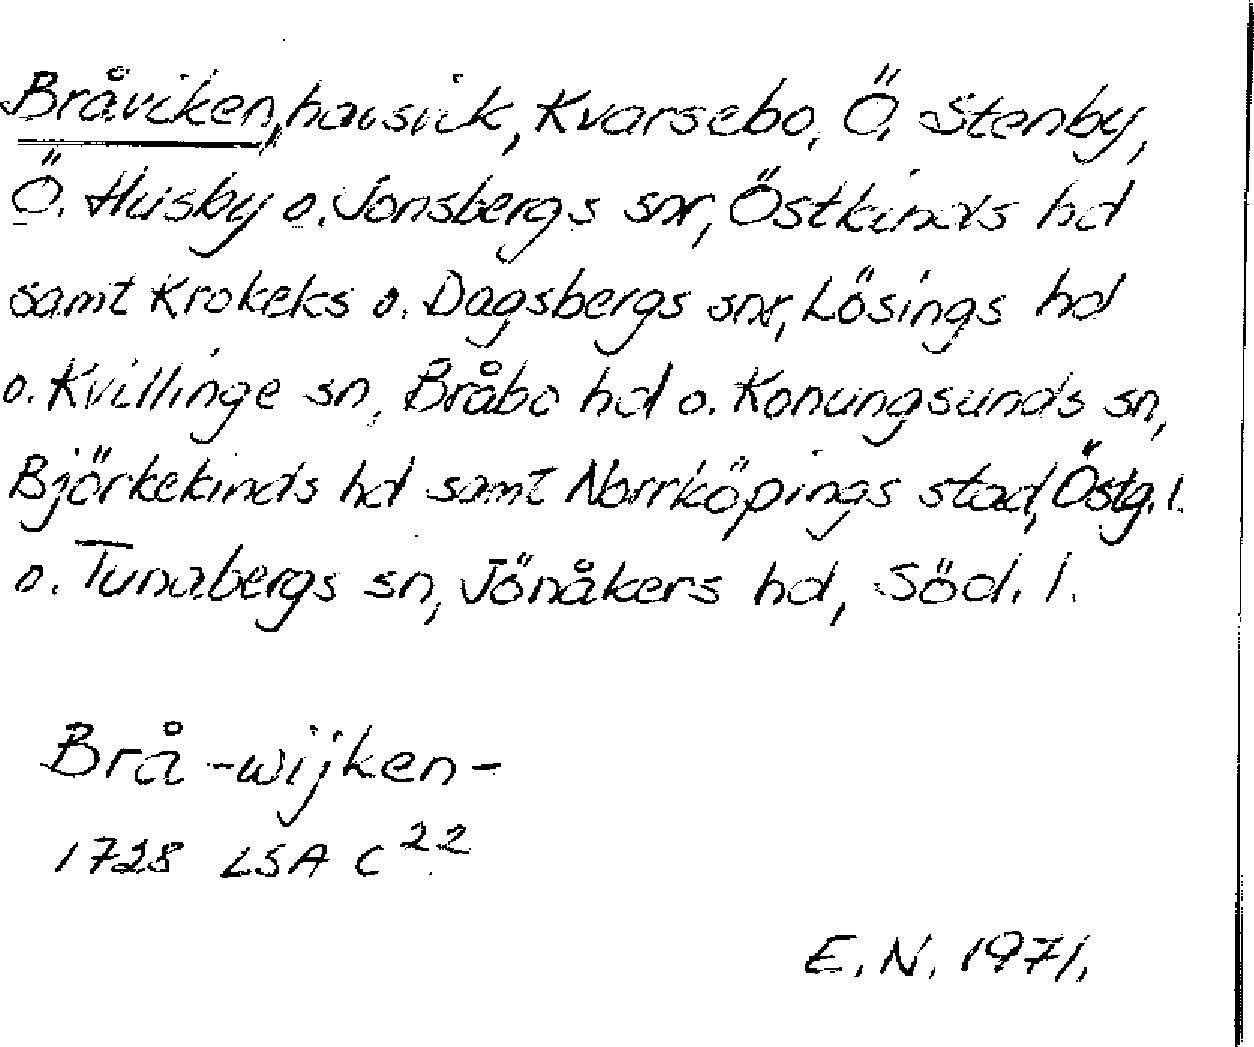 Bråviken, havsvik, Kvarsebo, Ö. Stenby,
Ö. Husby o. Jonsbergs snr, Östkinds hd
samt Krokeks o. Dagsbergs snr, Lösings hd
o. Kvillinge sn, Bråbo hd o. Konungsunds sn,
Björkekinds hd samt Norrköpings stad, Östg. l.
o. Tunabergs sn, Jönåkers hd, Söd. l.
Brå-wijken-
1728 LSA C 22
E. N. 1971.